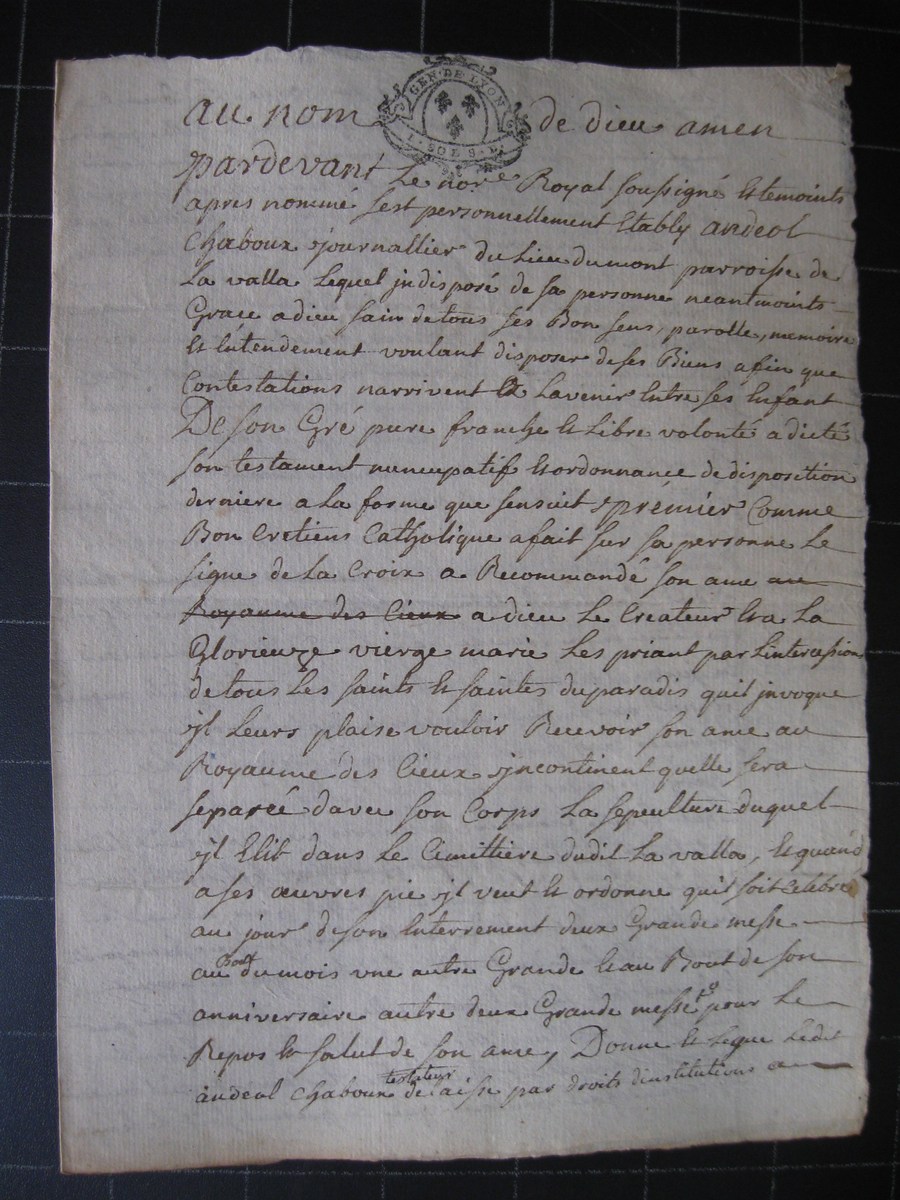 GEN · DE LYON
· SOLS ·
au nom de dieu amen
pardevant Le nore Royal soussigné Et temoints
apres nommé sest personnellement Etably andeol
Chaboux journallier du Lieu dumont parroisse de
La valla Lequel jndisposé de sa personne neantmoints
Grace a dieu sain de tous ses Bon sens, parolle, memoire
Et Entendement voulant disposer de ses Biens afin que
Contestations narrivent Lavenir Entre ses Enfant
De son Gré pure franche Et Libre volonté a dicté
son testament nuncupatif Et ordonnance de disposition
derniere a La forme que sensuit premier Comme
Bon Cretiens Catholique a fait sur sa personne Le
signe de La Croix a Recommandé son ame au
Royaume des Cieux a dieu Le Createur Et a La
Glorieuze vierge marie Les priant par Lintercession
de tous Les saints Et saintes du paradis quil jnvoque
jl Leurs plaise vouloir Recevoir son ame au
Royaume des Cieux jncontinent quelle sera
separéé davec son Corps La sepculture duquel
jl Elit dans Le Cimittiere dudit La valla, Et quand
a ses œuvres pie jl veut Et ordonne quil soit Celebré
au jour de son Enterrement deux Grande messe
au Bout du mois vne autre Grande Et au Bout de son
anniversaire autre deux Grande messe pour Le
Repos Et salut de son ame, Donne Et Legue Ledit
andeol Chaboux testateur delaisse par droits dinstitutions a